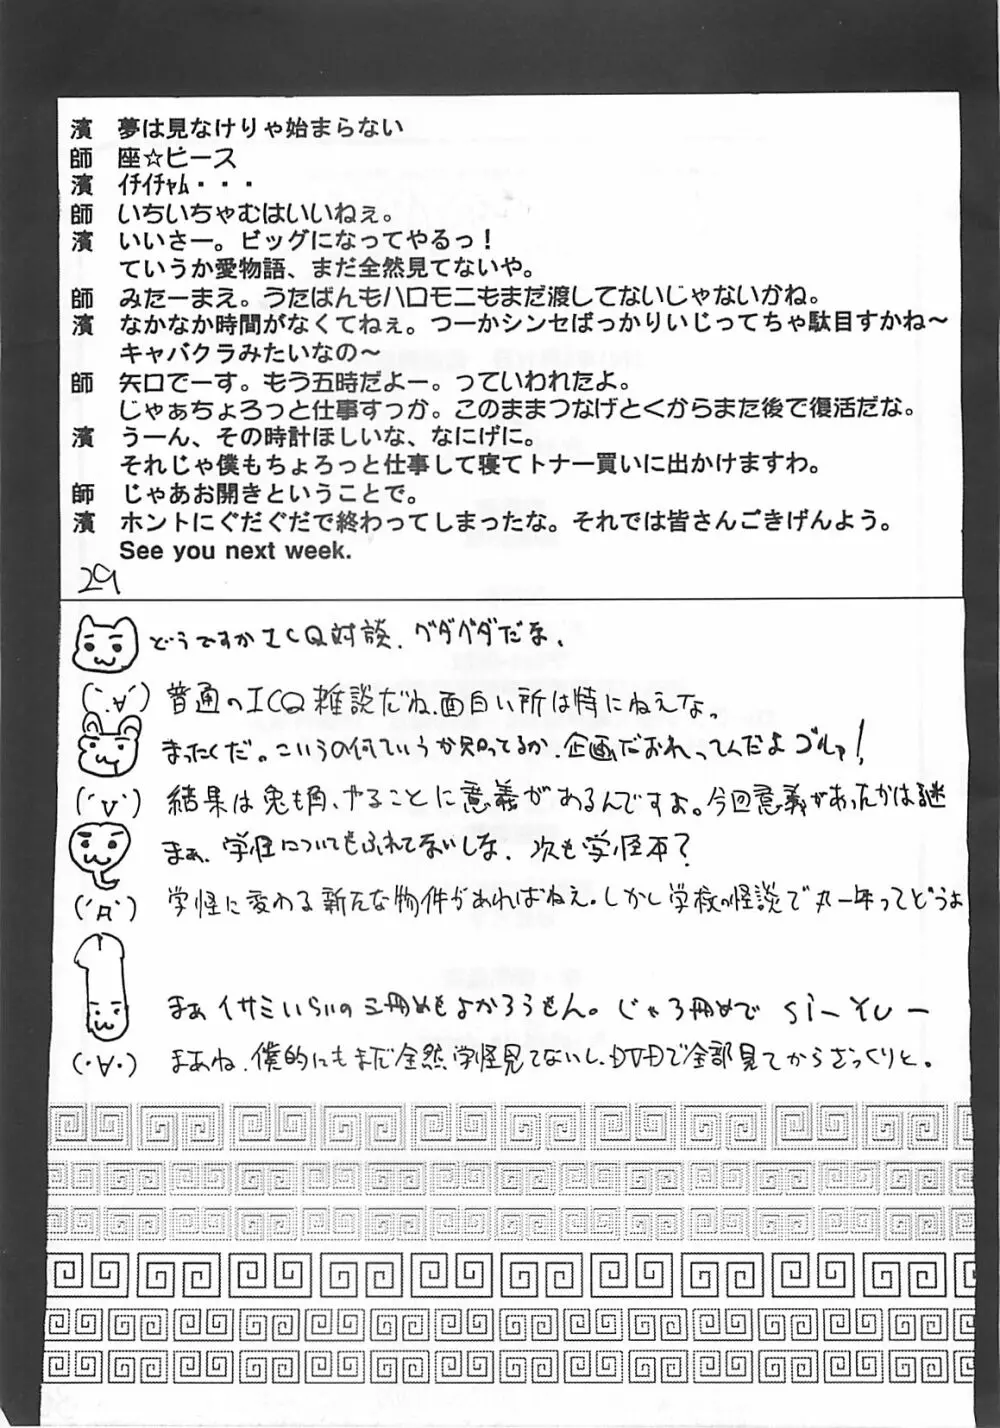 濱 夢は見なけりゃ始まらない
師 座☆ピース
濱 ｲﾁｲﾁｬﾑ・・・
師 いちいちゃむはいいねぇ。
濱 いいさー。ビッグになってやるっ！
ていうか愛物語、まだ全然見てないや。
師 みたーまえ。うたばんもハロモニもまだ渡してないじゃないかね。
濱 なかなか時間がなくてねぇ。つーかシンセばっかりいじってちゃ駄目すかね〜
キャバクラみたいなの〜
師 矢口でーす。もう五時だよー。っていわれたよ。
じゃぁちょろっと仕事すっか。このままつなげとくからまた後で復活だな。
濱 うーん、その時計ほしいな、なにげに。
それじゃ僕もちょろっと仕事して寝てトナー買いに出かけますわ。
師 じゃあお開きということで。
濱 ホントにぐだぐだで終わってしまったな。それでは皆さんごきげんよう。
See you next week.
29
どうですかICQ対談、グダグダだな、
(･∀･) 普通のICQ雑談だね、面白い所は特にねえな。
まったくだ。こういうの何ていうか知ってるか、企画だおれってんだよゴルァ!
(･∀･) 結果は兎も角、やることに意義があるんですよ。今回意義があったかは謎
まぁ、学怪についてもふれてないしな、次も学怪本?
(･Д･) 学怪に変わる新たな物件があればねえ。しかし学校の怪談で丸一年ってどうよ
まぁイサミいらいの三冊めもよかろうもん。じゃ3冊めで si-yu-
(･∀･) まあね、僕的にもまだ全然学怪見てないし、DVDで全部見てからざっくりと。